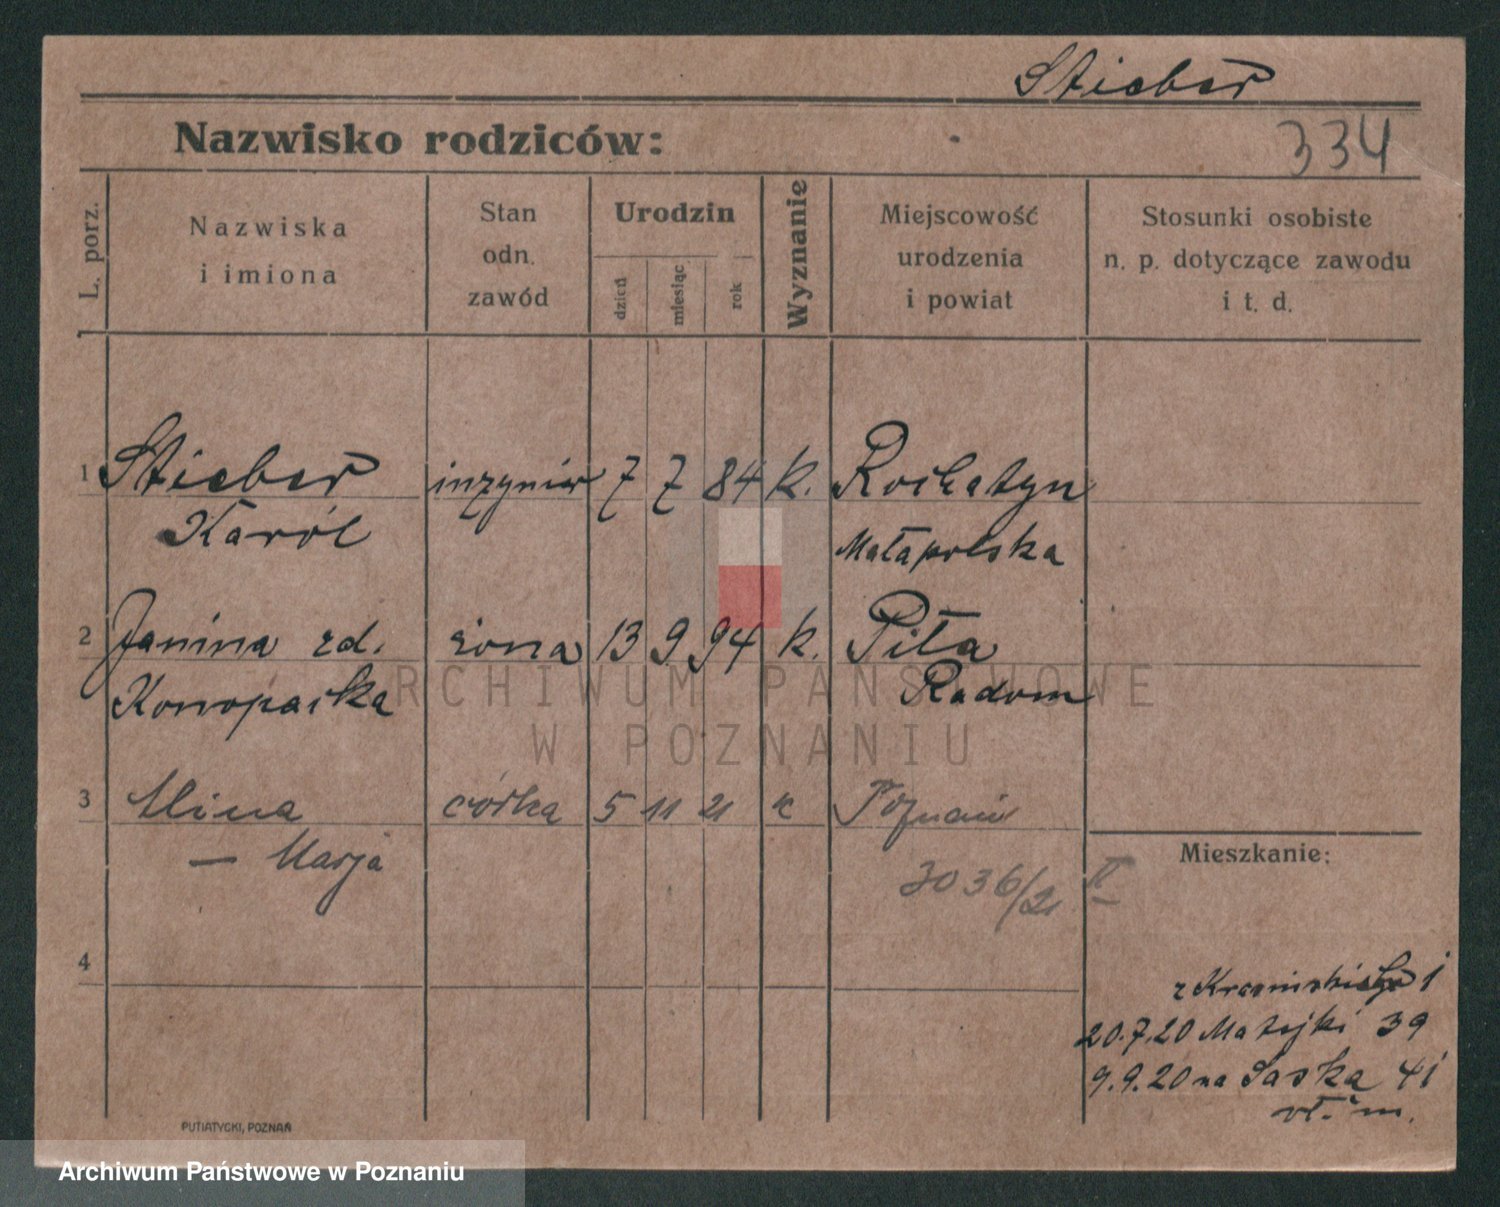 Stieber
Nazwisko rodziców:
334
L. porz.
Nazwiska
i imiona
Stan
odn.
zawód
Urodzin
dzień
miesiąc
rok
Wyznanie
Miejscowość
urodzenia
i powiat
Stosunki osobiste
n. p. dotyczące zawodu
i t. d.
1 Stieber inżynier 7 7 84 k. Rohatyn
Karól Małapolska
2 Janina zd. żona 13 9 94 k. Piła
Konopacka Radom
ARCHIWUM PAŃSTWOWE
W POZNANIU
3 Alina córka 5 11 21 k Poznań
— Marja
3036/21 II
Mieszkanie:
4
20.7.20 Matejki 39
9.9.20 na Saska 41
wł. m.
PUTIATYCKI, POZNAŃ
Archiwum Państwowe w Poznaniu